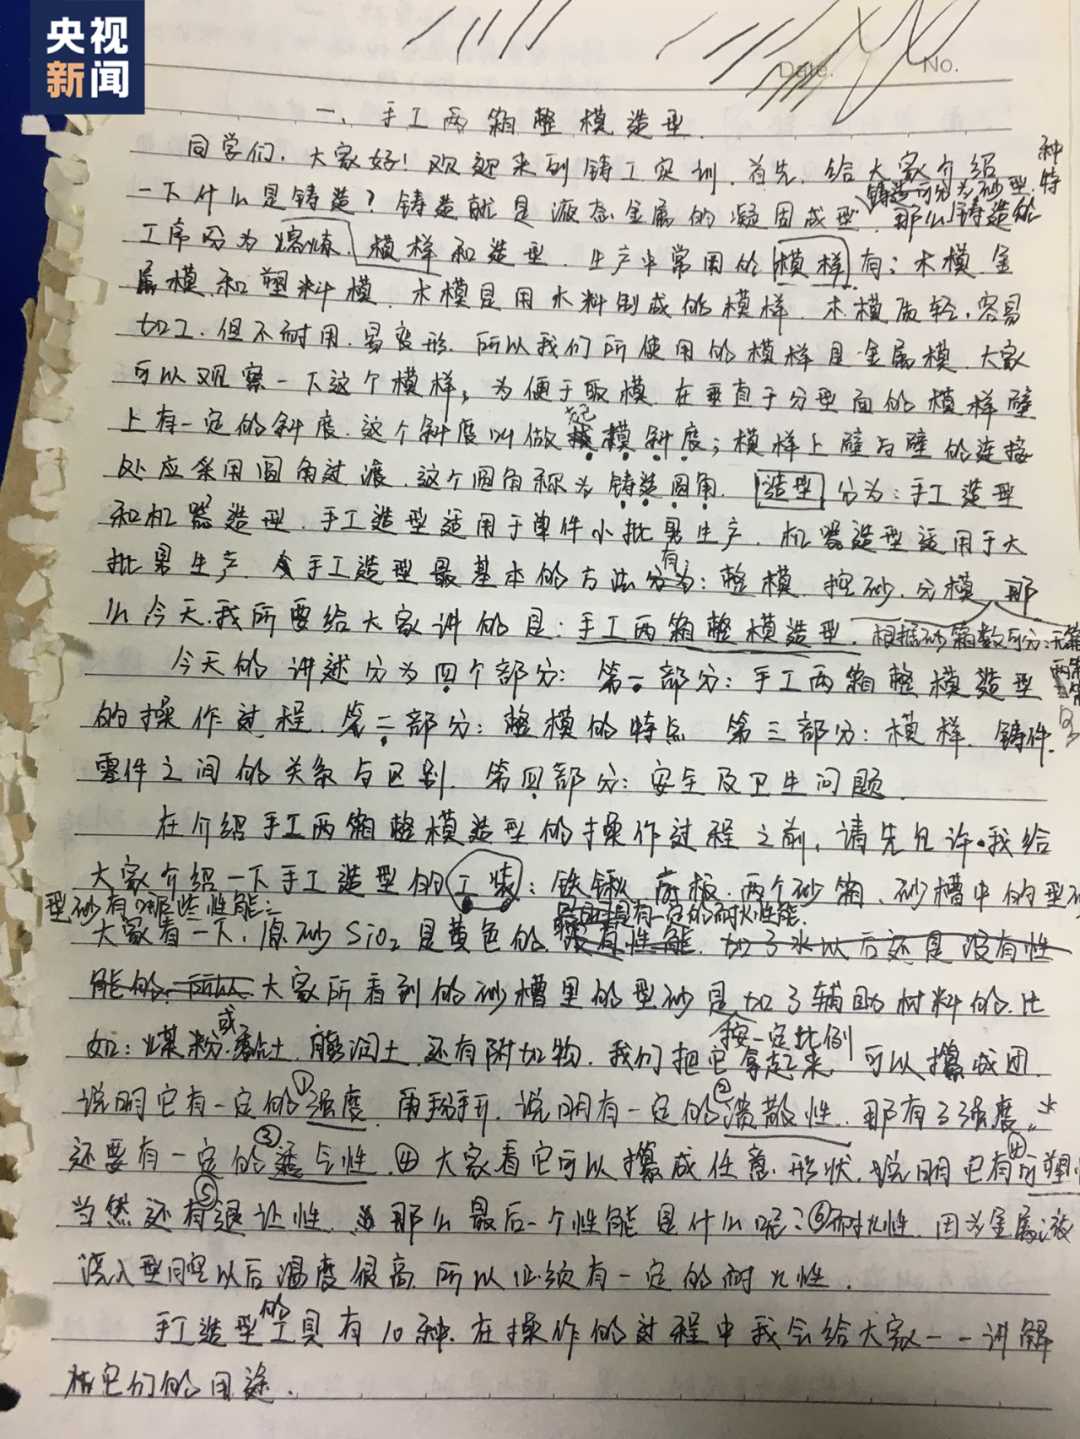 央视
新闻
Date.
No.
一、手工两箱整模造型
同学们，大家好！欢迎来到铸工实训，首先，给大家介绍
一下什么是铸造？铸造就是液态金属的凝固成型，铸造可分为砂型、特种 那么铸造的
工序分为熔炼、模样和造型。生产中常用的模样有：木模、金
属模和塑料模。木模是用木料制成的模样。木模质轻，容易
加工，但不耐用，易变形。所以我们所使用的模样是金属模。大家
可以观察一下这个模样，为便于取模，在垂直于分型面的模样壁
上有一定的斜度，这个斜度叫做起模斜度；模样上壁与壁的连接
处应采用圆角过渡，这个圆角称为铸造圆角。造型分为：手工造型
和机器造型。手工造型适用于单件小批量生产，机器造型适用于大
批量生产。手工造型最基本的方法有：整模、挖砂、分模。那
么今天我所要给大家讲的是：手工两箱整模造型。根据砂箱数可分：无箱
两箱
今天的讲述分为四个部分：第一部分：手工两箱整模造型
的操作过程。第二部分：整模的特点 第三部分：模样、铸件、
零件之间的关系与区别。第四部分：安全及卫生问题。
在介绍手工两箱整模造型的操作过程之前，请先允许我给
大家介绍一下手工造型的工装：铁锹、底板、两个砂箱、砂槽中的型砂
型砂有哪些性能：
大家看一下，原砂SiO₂是黄色的 具有一定的耐火性能 没有性能，加了水以后还是没有性
能的，所以大家所看到的砂槽里的型砂是加了辅助材料的，比
如：煤粉或黏土、膨润土、还有附加物，按一定比例 我们把它拿起来，可以攥成团，
说明它有一定的①强度，再掰开，说明有一定的②溃散性，那有了强度，
还要有一定的③透气性，④大家看它可以攥成任意形状，说明它有④可塑性
当然还有⑤退让性，那么最后一个性能是什么呢？⑥耐火性，因为金属液
浇入型腔以后温度很高，所以必须有一定的耐火性。
手工造型的工具有10种，在操作的过程中我会给大家一一讲解
它们的用途。